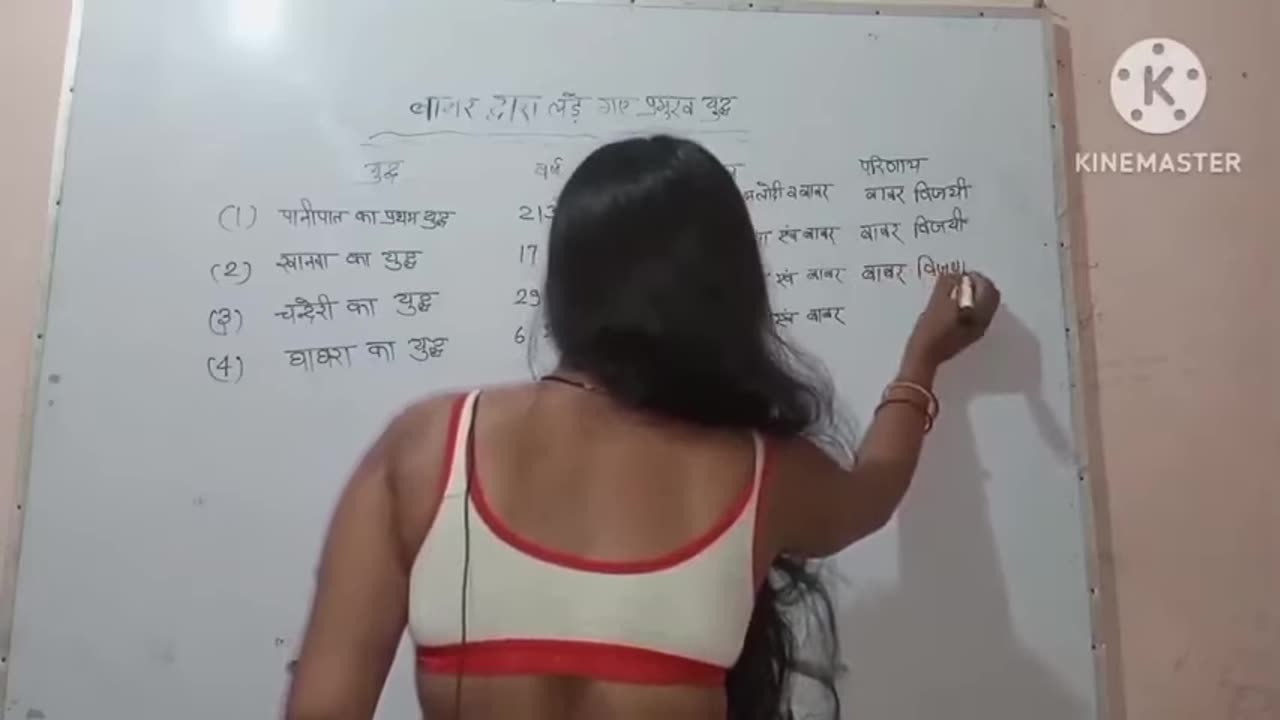 बाबर द्वारा लड़ें गए प्रमुख युद्ध
युद्ध वर्ष परिणाम
(1) पानीपत का प्रथम युद्ध 21 लोदी व बाबर बाबर विजयी
(2) खानवा का युद्ध 17 एंव बाबर बाबर विजयी
(3) चन्देरी का युद्ध 29 एंव बाबर बाबर
(4) घाघरा का युद्ध 6 एंव बाबर
K
KINEMASTER